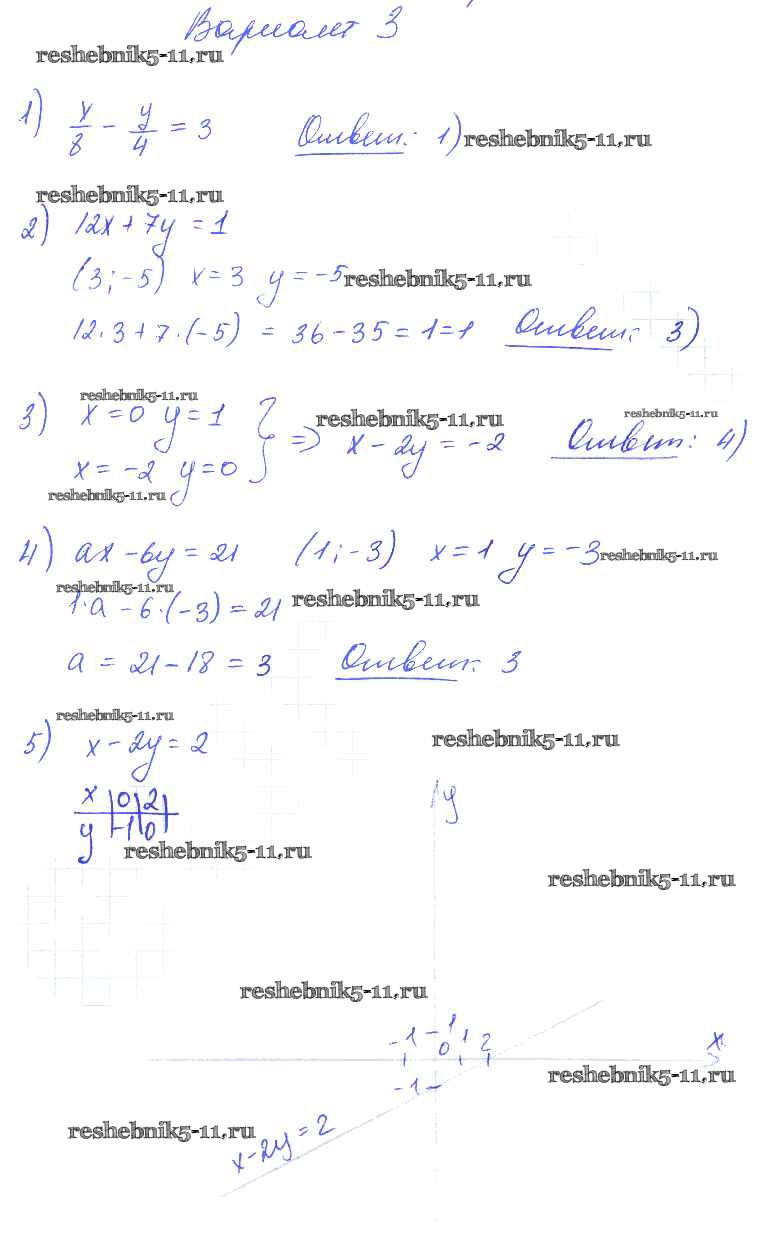 Вариант 3
reshebnik5-11.ru
1) x/8 - y/4 = 3 Ответ: 1) reshebnik5-11.ru
reshebnik5-11.ru
2) 12x + 7y = 1
(3; -5) x = 3 y = -5 reshebnik5-11.ru
12·3 + 7·(-5) = 36 - 35 = 1 = 1 Ответ: 3)
reshebnik5-11.ru reshebnik5-11.ru
3) x = 0 y = 1 } ⇒ x - 2y = -2 reshebnik5-11.ru Ответ: 4)
x = -2 y = 0
reshebnik5-11.ru
4) ax - 6y = 21 (1; -3) x = 1 y = -3 reshebnik5-11.ru
reshebnik5-11.ru
1·a - 6·(-3) = 21 reshebnik5-11.ru
a = 21 - 18 = 3 Ответ: 3
reshebnik5-11.ru
5) x - 2y = 2 reshebnik5-11.ru
x | 0 | 2 |
y | -1 | 0 |
y
reshebnik5-11.ru
reshebnik5-11.ru
reshebnik5-11.ru
-1 1 0 1 2 x
reshebnik5-11.ru
-1
reshebnik5-11.ru
x - 2y = 2